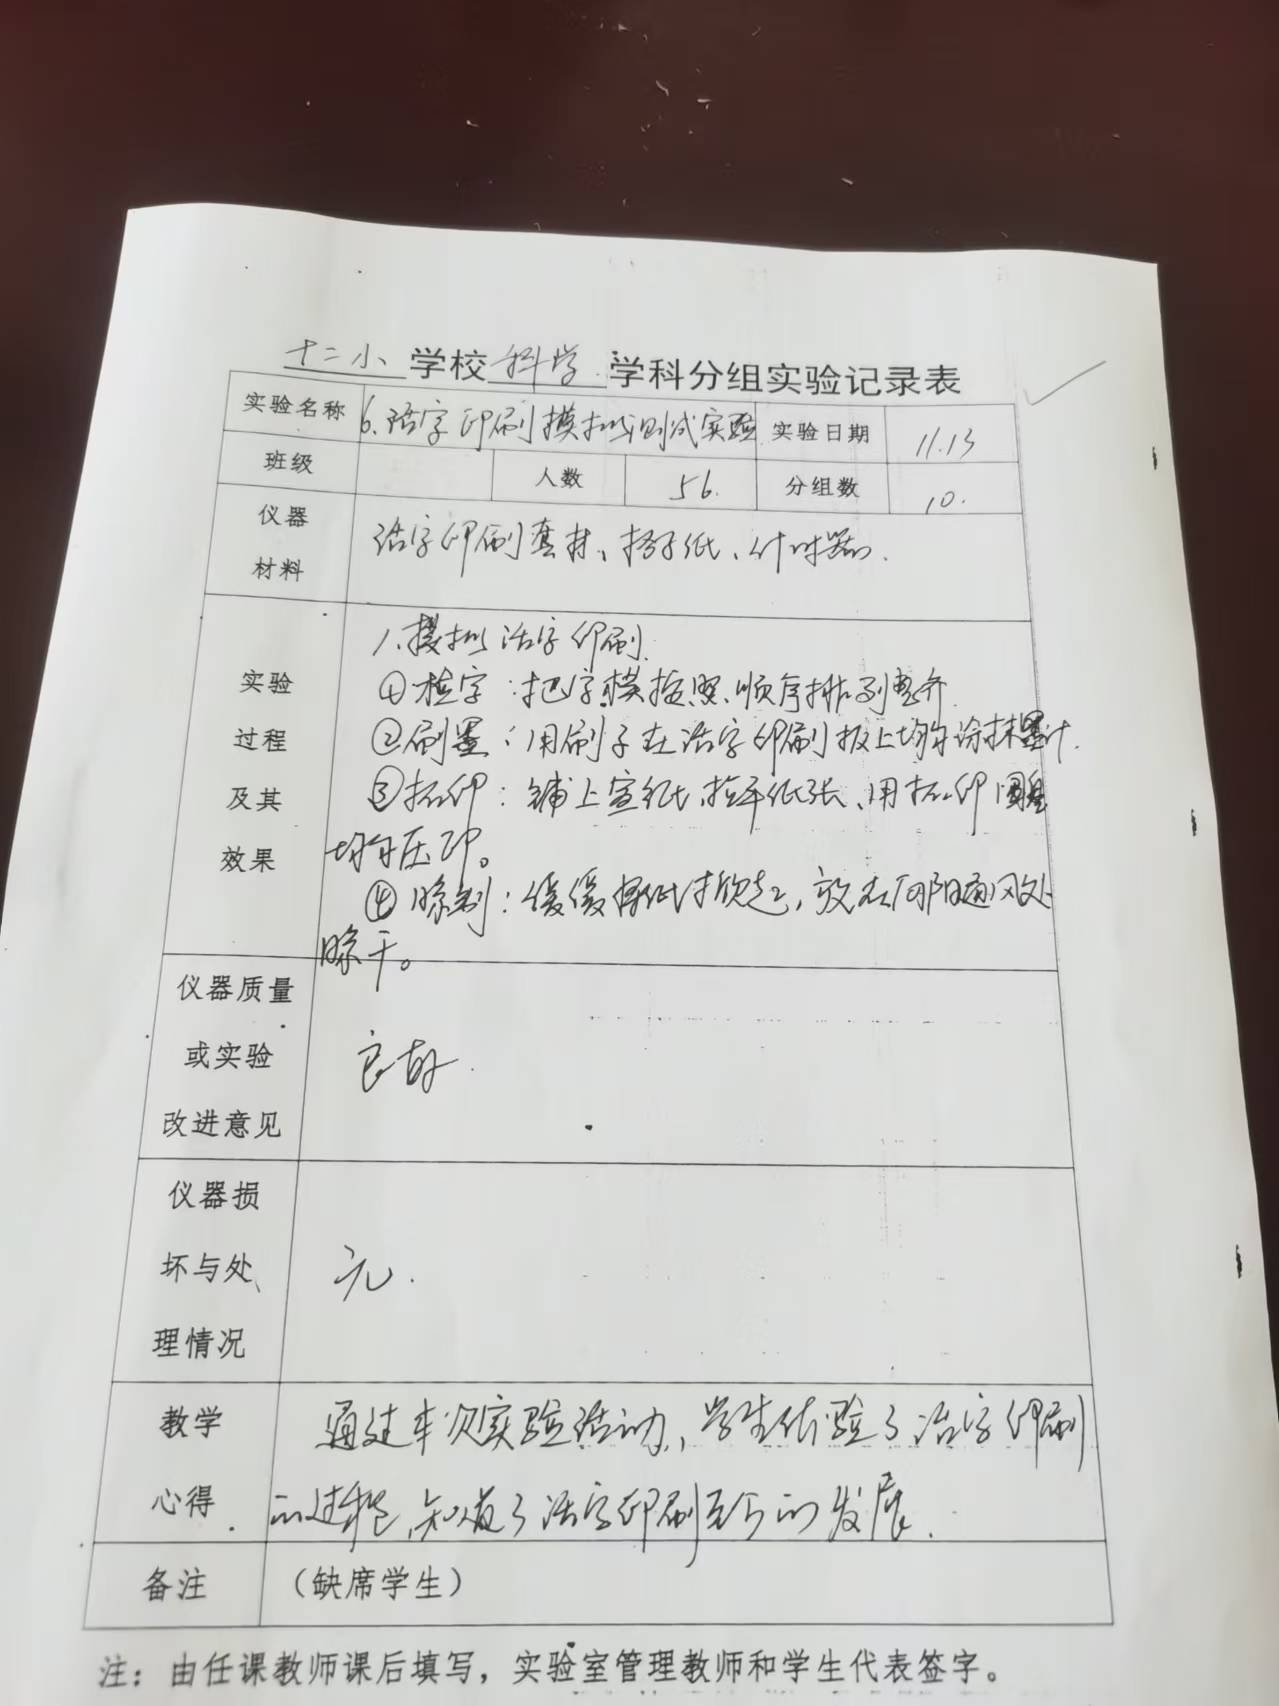 十二小 学校 科学 学科分组实验记录表
实验名称 6.活字印刷模拟测试实验 实验日期 11.13
班级 人数 56. 分组数 10.
仪器 材料 活字印刷套材、 纸、计时器.
实验 过程 及其 效果
1.模拟活字印刷.
①检字:把字模按照顺序排列整齐
②刷墨:用刷子在活字印刷板上均匀涂抹墨汁.
③拓印:铺上宣纸,拉平纸张、用拓印
均匀压印。
④晾制:缓缓将纸掀起,放在向阳通风处
晾干。
仪器质量 或实验 改进意见 良好.
仪器损 坏与处 理情况 无.
教学 心得
通过本次实验活动,学生体验了活字印刷
的过程,知道了活字印刷至今的发展.
备注 (缺席学生)
注:由任课教师课后填写,实验室管理教师和学生代表签字。